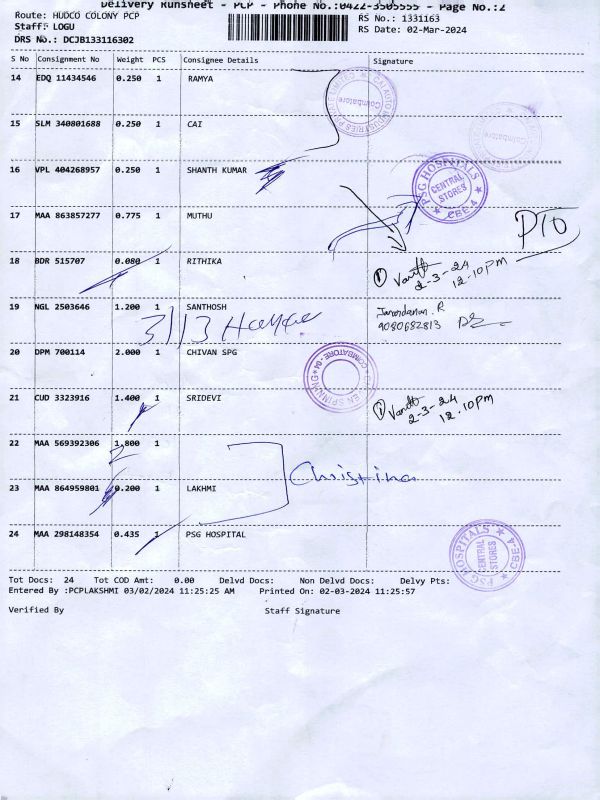 Delivery Runsheet - PCP - Phone No.:0422-3505555 - Page No.:2
Route: HUDCO COLONY PCP
RS No.: 1331163
Staff: LOGU
RS Date: 02-Mar-2024
DRS No.: DCJB133116302
S No Consignment No Weight PCS Consignee Details Signature
14 EDQ 11434546 0.250 1 RAMYA
15 SLM 340801688 0.250 1 CAI
Coimbatore
16 VPL 404268957 0.250 1 SHANTH KUMAR
PSG HOSPITALS CENTRAL STORES CBE-4
17 MAA 863857277 0.775 1 MUTHU
PTO
18 BDR 515707 0.080 1 RITHIKA
1 2-3-24 12.10PM
19 NGL 2503646 1.200 1 SANTHOSH
9080682813
20 DPM 700114 2.000 1 CHIVAN SPG
SPINNING COIMBATORE-04
21 CUD 3323916 1.400 1 SRIDEVI
1 2-3-24 12.10PM
22 MAA 569392306 1.800 1
Christina
23 MAA 864959801 0.200 1 LAKHMI
24 MAA 298148354 0.435 1 PSG HOSPITAL
PSG HOSPITALS CENTRAL STORES CBE-4
Tot Docs: 24 Tot COD Amt: 0.00 Delvd Docs: Non Delvd Docs: Delvy Pts:
Entered By :PCPLAKSHMI 03/02/2024 11:25:25 AM Printed On: 02-03-2024 11:25:57
Verified By Staff Signature